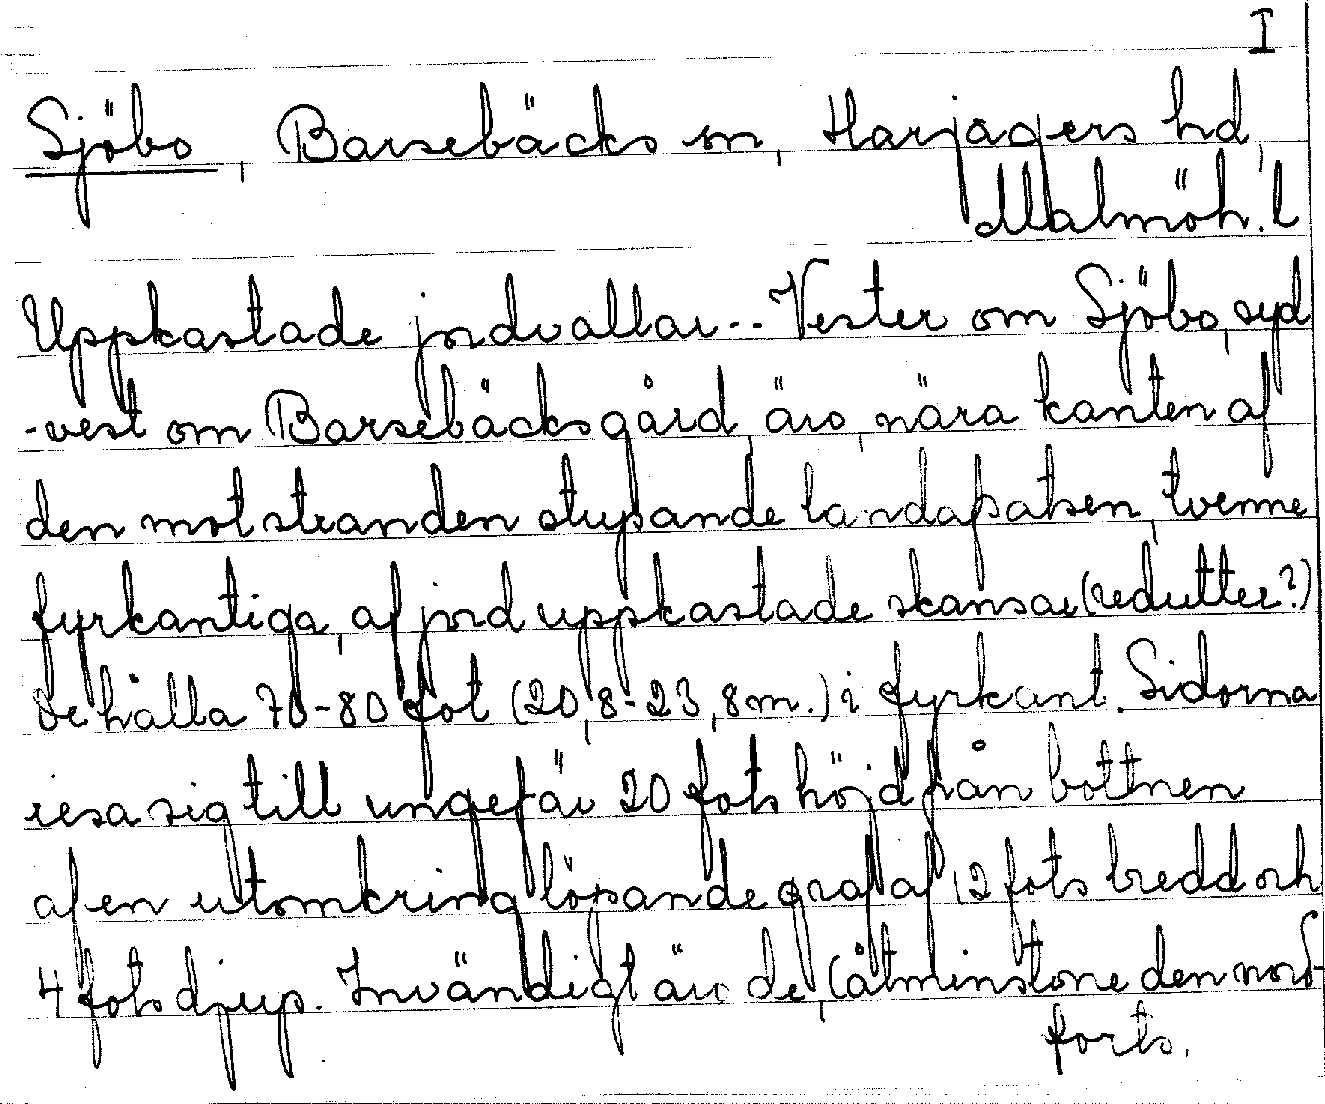 I
Sjöbo, Barsebäcks sn, Harjagers hd,
Malmöh. l
Uppkastade jordvallar.. Vester om Sjöbo, syd
-vest om Barsebäcksgård äro, nära kanten af
den mot stranden stupande landapatsen, tvenne
fyrkantiga, af jord uppkastade skansar (redutter?)
De hålla 70-80 fot (20,8-23,8 m.) i fyrkant. Sidorna
resa sig till ungefär 20 fots höjd från bottnen
af en utomkring löpande graf af 12 fots bredd och
4 fots djup. Invändigt äro de, (åtminstone den nord-
forts.